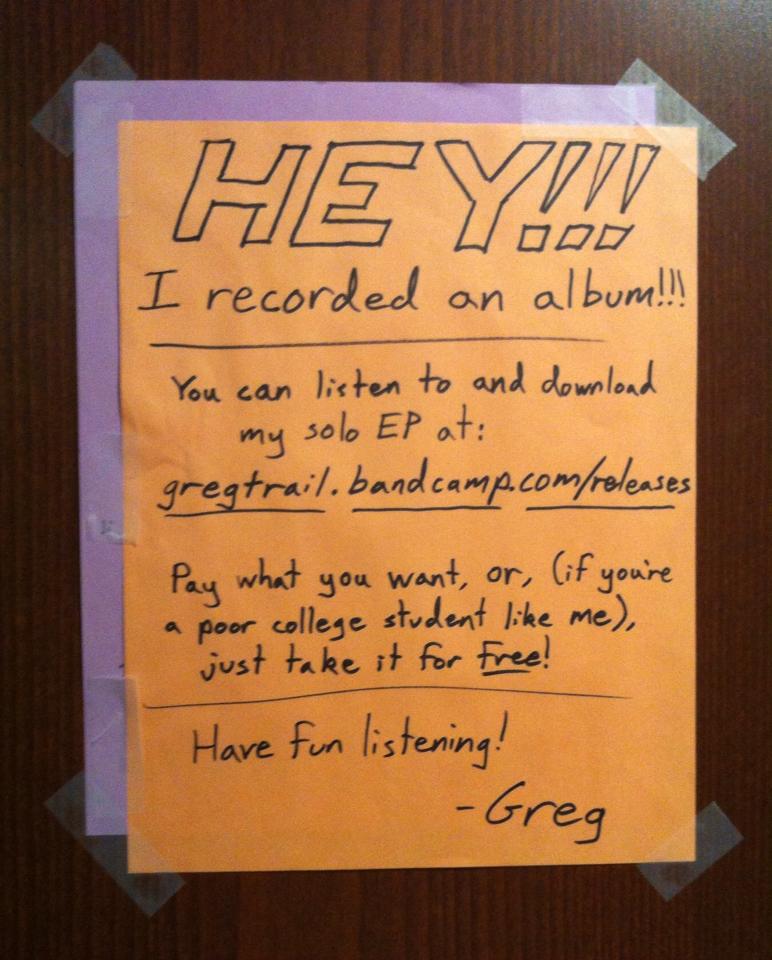 HEY!!!
I recorded an album!!!
You can listen to and download
my solo EP at:
gregtrail.bandcamp.com/releases
Pay what you want, or, (if you're
a poor college student like me),
just take it for free!
Have fun listening!
-Greg